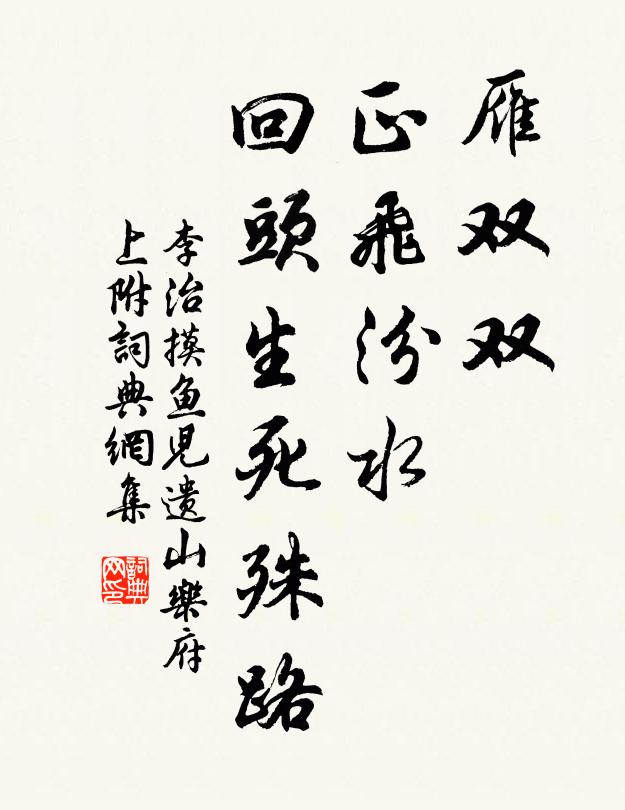 雁双双
正飛汾水
回頭生死殊路
李治摸鱼兒遗山樂府
上附詞典網集
詞典网印